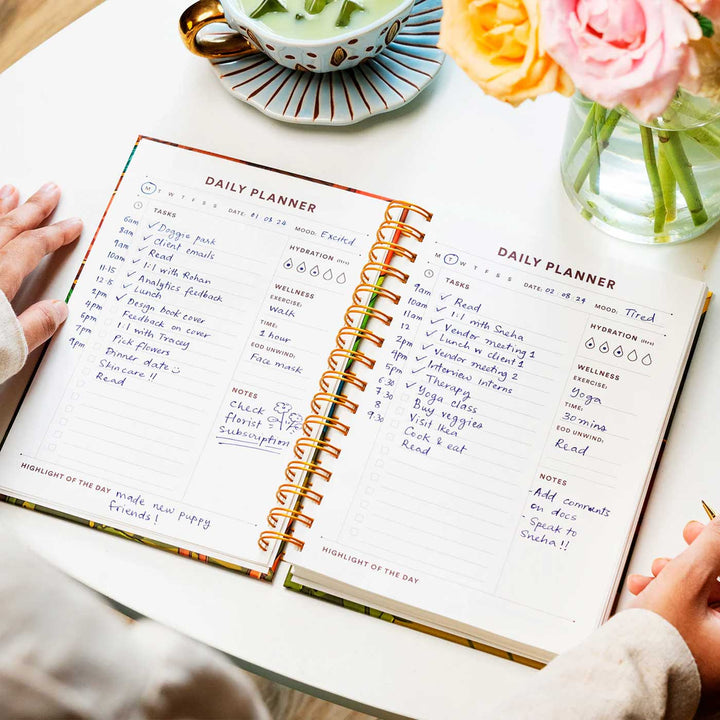 DAILY PLANNER
M T W T F S S DATE: 01 08 24 MOOD: Excited
TASKS
6am ✓ Doggie park
8am ✓ Client emails
9am ✓ Read
10am ✓ 1:1 with Rohan
11:15 ✓ Analytics feedback
12:15 ✓ Lunch
2pm ✓ Design book cover
4pm Feedback on cover
5pm 1:1 with Tracey
6pm Pick flowers
7pm Dinner date
Skincare!!
9pm Read
HYDRATION
WELLNESS
EXERCISE:
Walk
TIME:
1 hour
EOD UNWIND:
Face mask
NOTES
Check
florist
subscription
HIGHLIGHT OF THE DAY
made new puppy
friends!
DAILY PLANNER
M T W T F S S DATE: 02 08 24 MOOD: Tired
TASKS
9am ✓ Read
10am ✓ 1:1 with Sneha
11am ✓ Vendor meeting 1
12 ✓ Lunch w client 1
2pm ✓ Vendor meeting 2
4pm ✓ Interview Interns
5pm ✓ Therapy
6.30 ✓ Yoga class
7.30 Buy veggies
8 Visit Ikea
9:30 Cook & eat
Read
HYDRATION
WELLNESS
EXERCISE:
Yoga
TIME:
30 mins
EOD UNWIND:
Read
NOTES
-Add comments
on docs
- Speak to
Sneha!!
HIGHLIGHT OF THE DAY